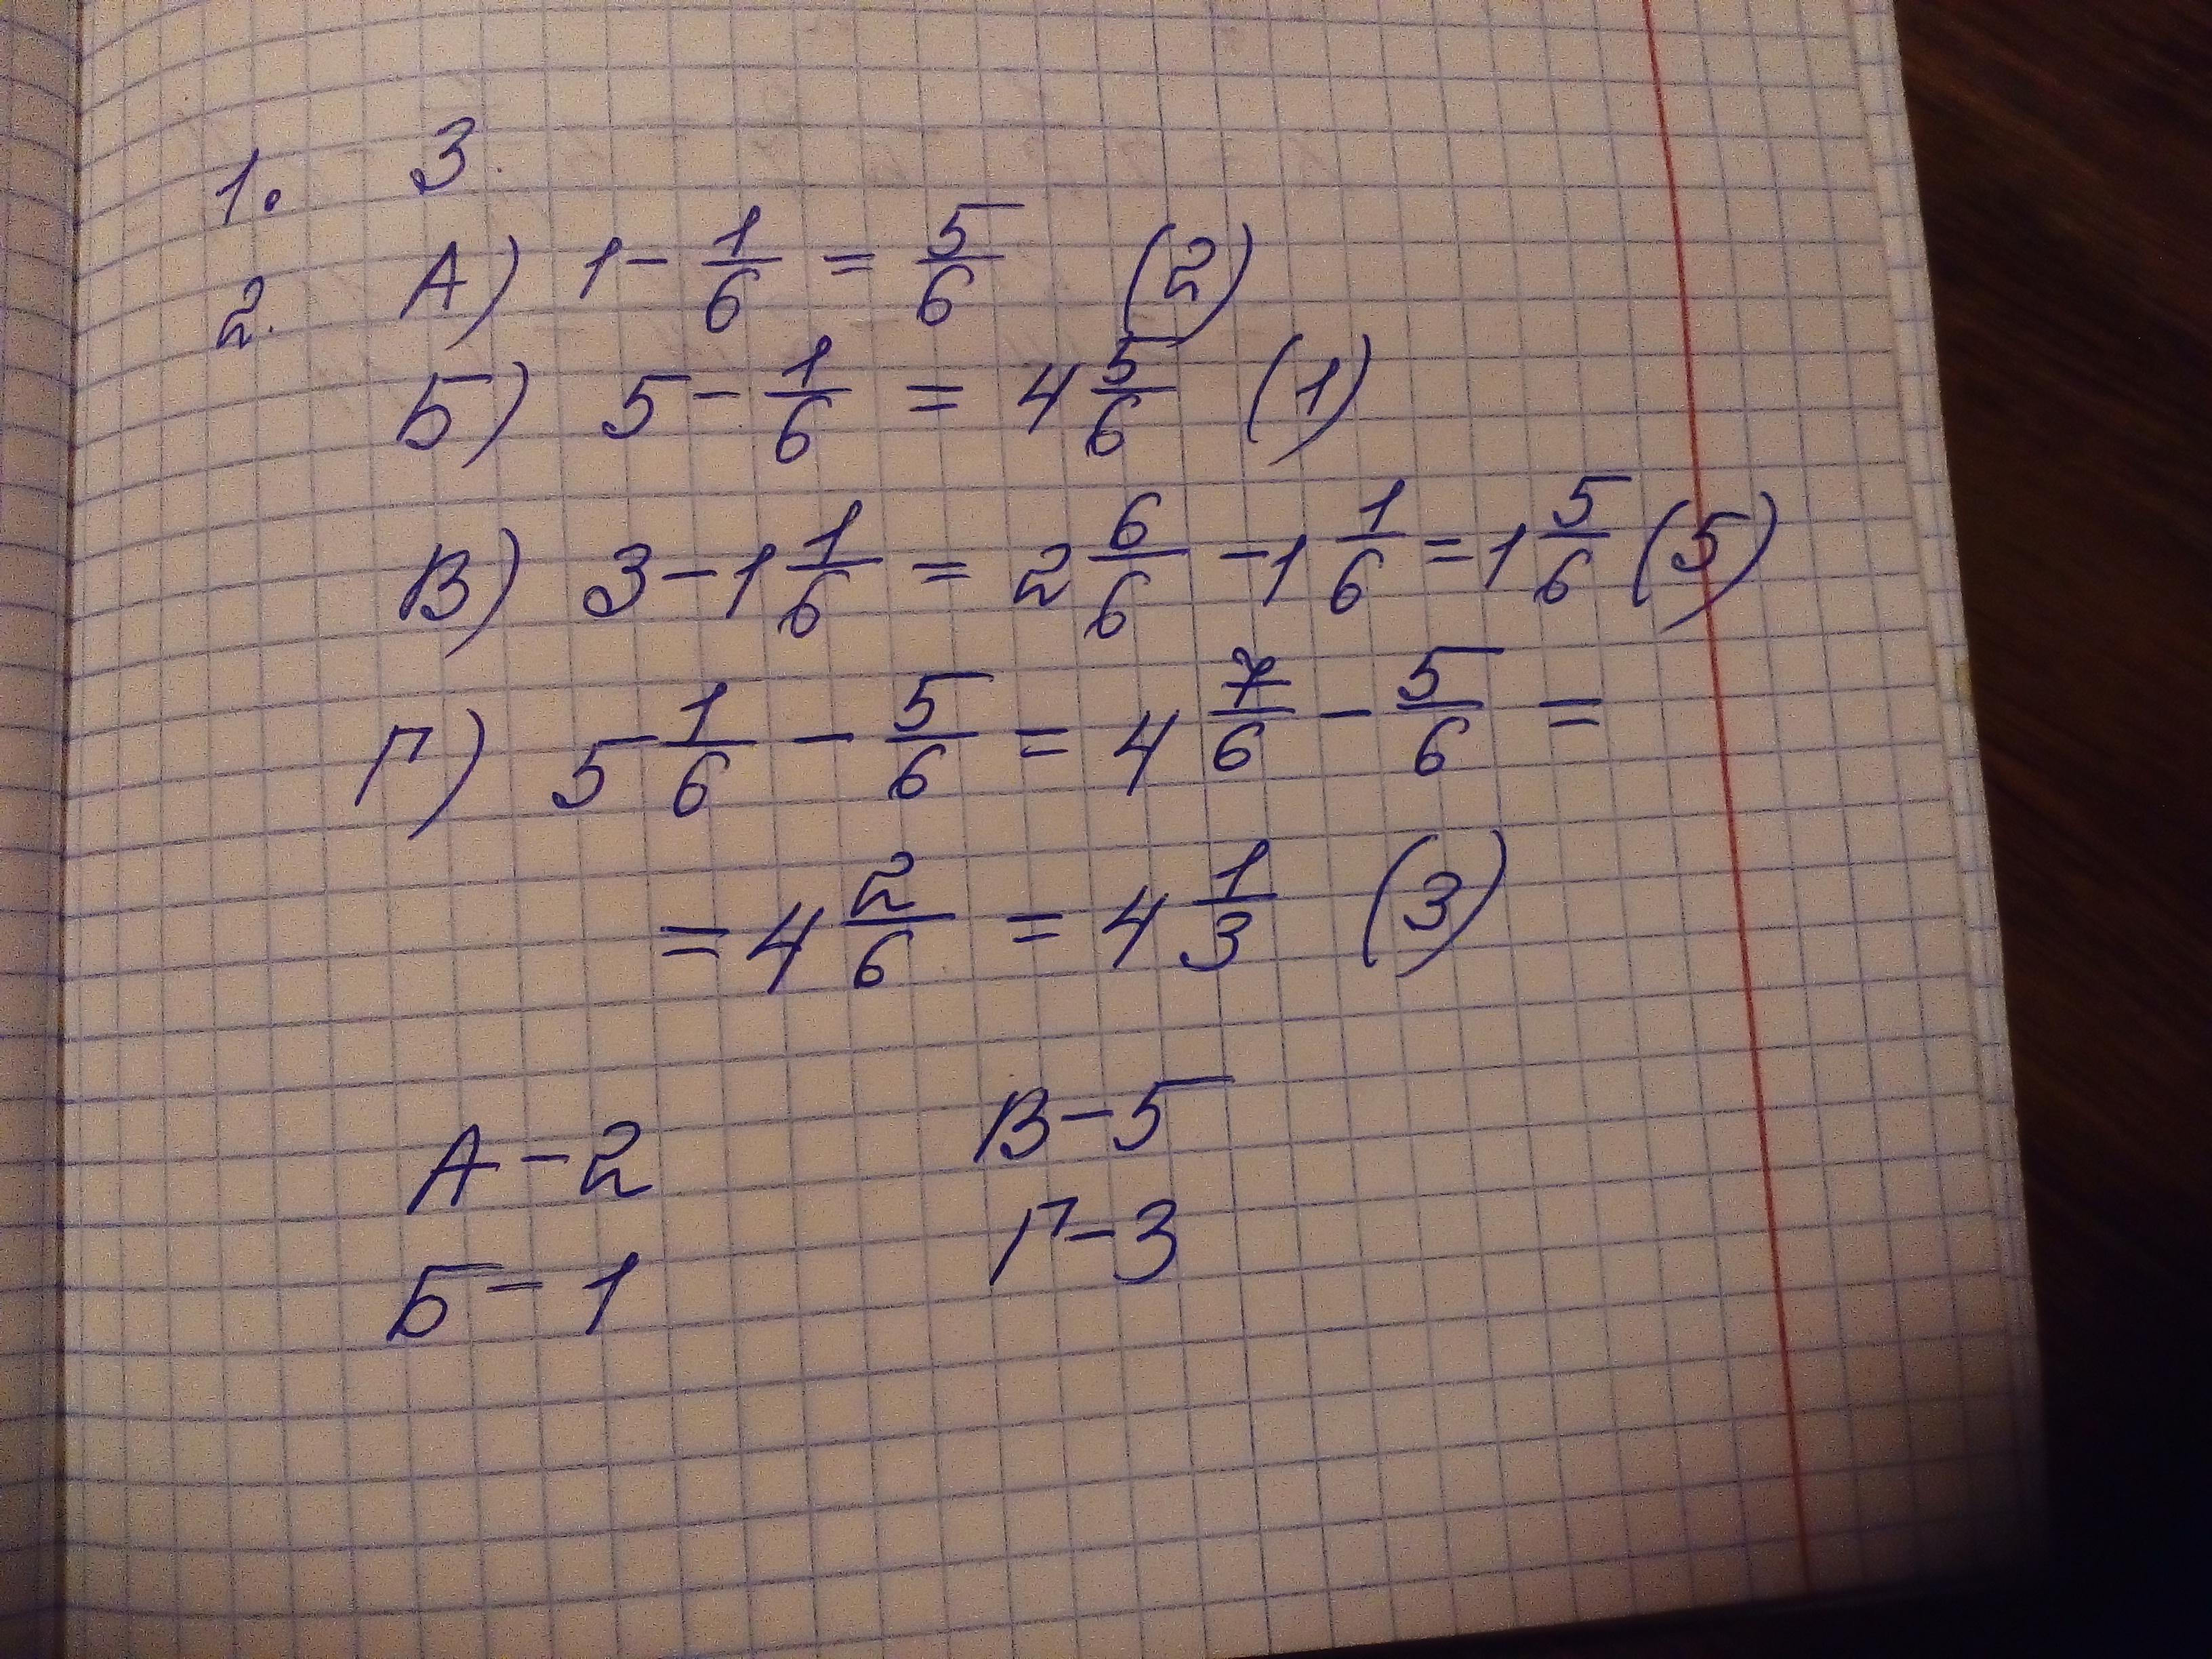 1. 3.
2. А) 1 - 1/6 = 5/6 (2)
Б) 5 - 1/6 = 4 5/6 (1)
В) 3 - 1 1/6 = 2 6/6 - 1 1/6 = 1 5/6 (5)
Г) 5 1/6 - 5/6 = 4 7/6 - 5/6 =
= 4 2/6 = 4 1/3 (3)
А - 2 В - 5
Б - 1 Г - 3